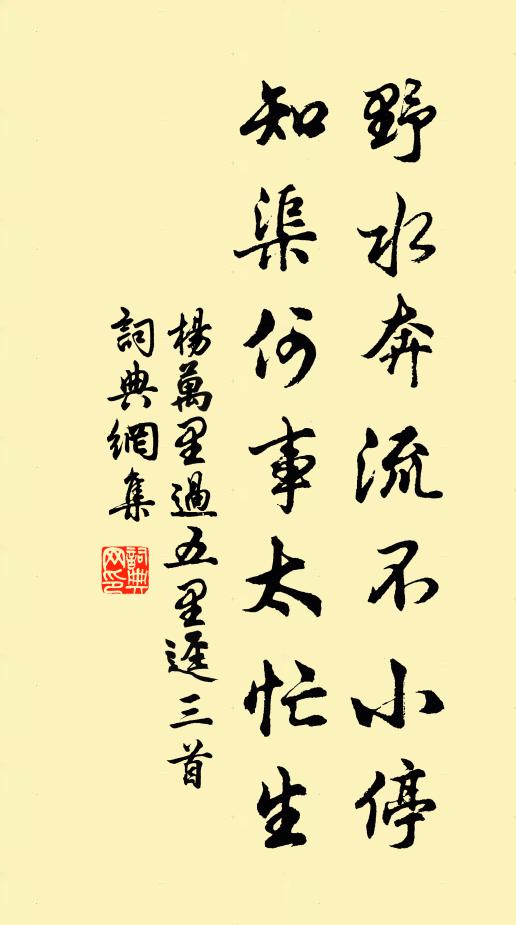 野水奔流不小停
知渠何事太忙生
楊萬里過五里逕三首
詞典網集
詞典
网印